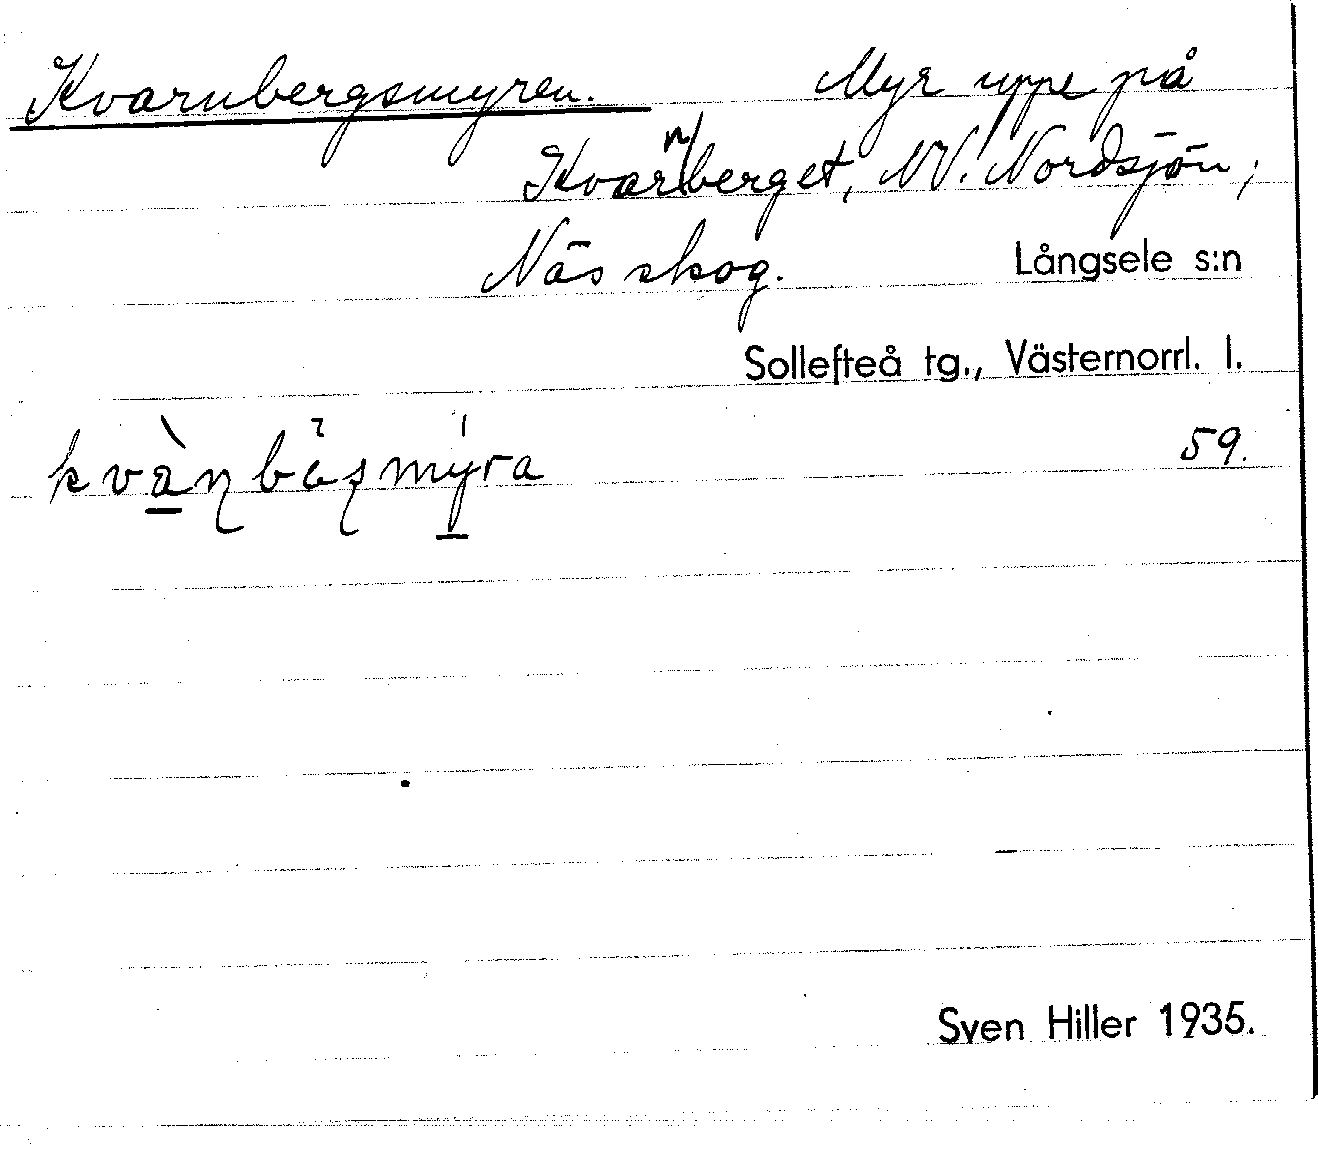 Kvarnbergsmyren. Myr uppe på
Kvarnberget, NV. Nordsjön,
Näs skog. Långsele s:n
Sollefteå tg., Västernorrl. l.
59.
Sven Hiller 1935.